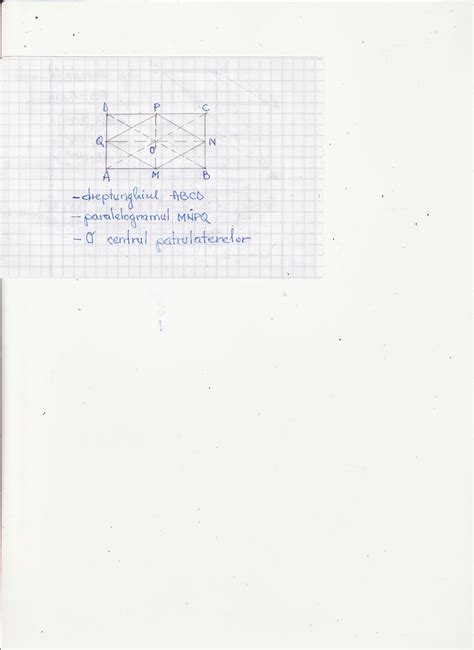 D P C
Q O N
A M B
- dreptunghiul ABCD
- paralelogramul MNPQ
- O centrul patrulaterelor